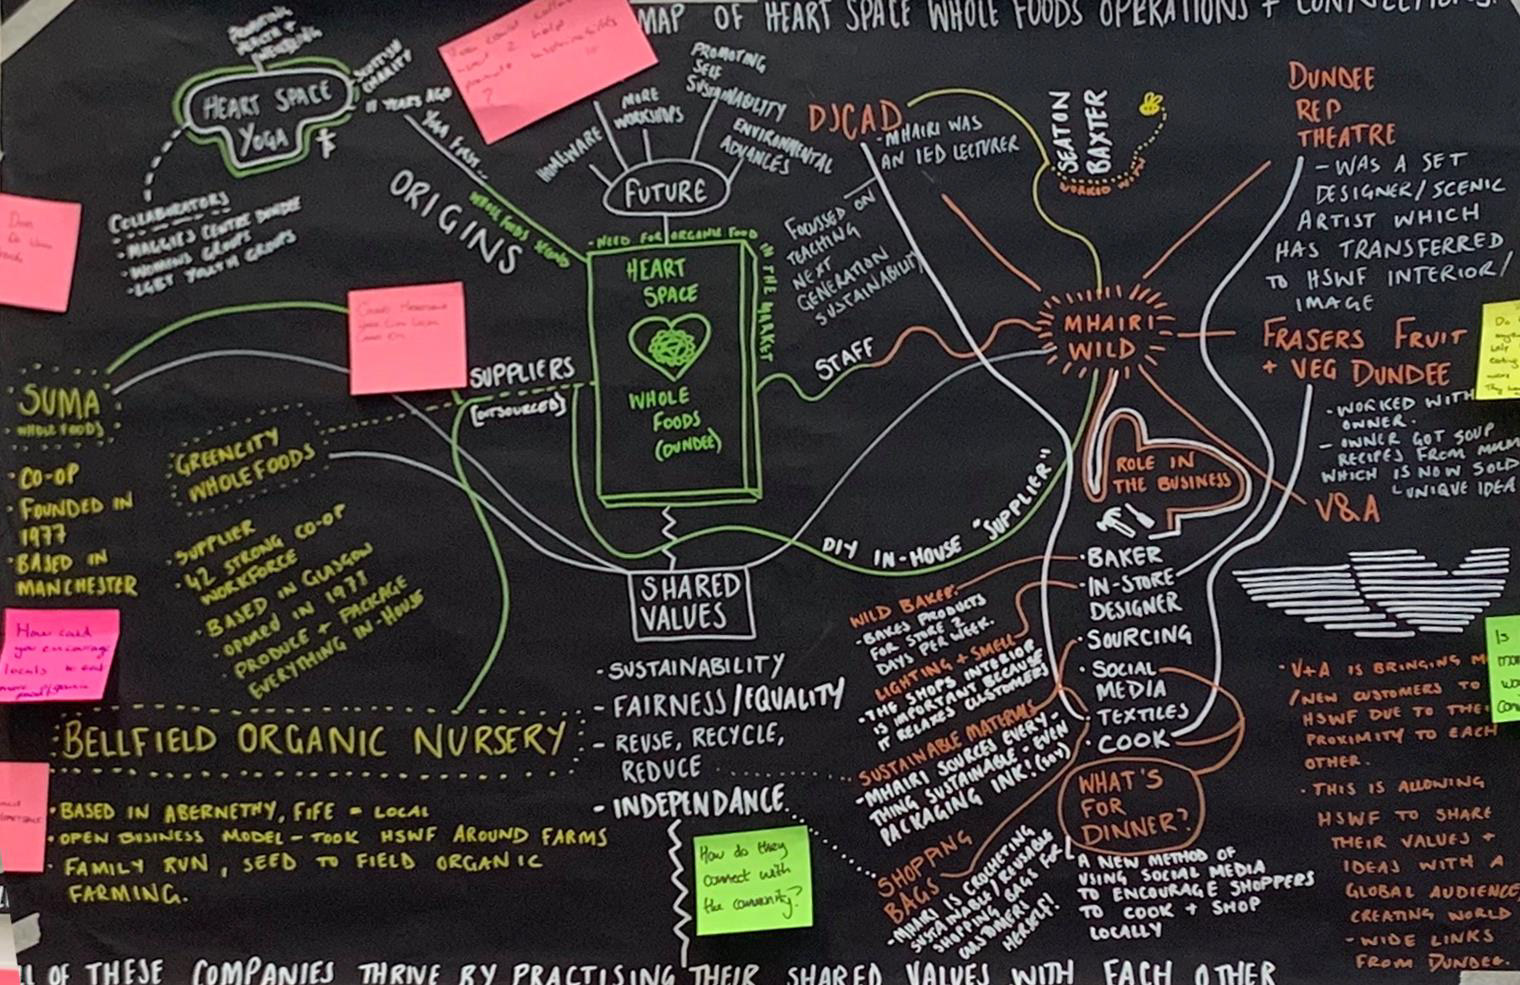 MAP OF HEART SPACE WHOLE FOODS OPERATIONS +
HEART SPACE
YOGA
SCOTTISH
CHARITY
11 YEARS AGO
YOGA FIRST...
WHOLE FOODS SECOND
ORIGINS
COLLABORATORS
- MAGGIES CENTRE DUNDEE
- WOMENS GROUPS
- LGBT YOUTH GROUPS
HOMEWARE
MORE
WORKSHOPS
PROMOTING
SELF
SUSTAINABILITY
ENVIRONMENTAL
ADVANCES
FUTURE
- NEED FOR ORGANIC FOOD
IN THE MARKET
HEART
SPACE
WHOLE
FOODS
(DUNDEE)
SUPPLIERS
(OUTSOURCED)
STAFF
DIY IN-HOUSE "SUPPLIER"
SUMA
WHOLE FOODS
· CO-OP
· FOUNDED IN
1977
· BASED IN
MANCHESTER
GREENCITY
WHOLEFOODS
· SUPPLIER
· 42 STRONG CO-OP
WORKFORCE
· BASED IN GLASGOW
· OPENED IN 1977
· PRODUCE + PACKAGE
EVERYTHING IN-HOUSE
How could
you encourage
locals to eat
more organic
food?
BELLFIELD ORGANIC NURSERY
· BASED IN ABERNETHY, FIFE = LOCAL
· OPEN BUSINESS MODEL - TOOK HSWF AROUND FARMS
· FAMILY RUN, SEED TO FIELD ORGANIC
FARMING.
SHARED
VALUES
- SUSTAINABILITY
- FAIRNESS/EQUALITY
- REUSE, RECYCLE,
REDUCE
- INDEPENDANCE
How do they
connect with
the community?
DJCAD
- MHAIRI WAS
AN IED LECTURER
FOCUSSED ON
TEACHING
NEXT
GENERATION
SUSTAINABILITY
SEATON
BAXTER
WORKED WITH
MHAIRI
WILD
DUNDEE
REP
THEATRE
- WAS A SET
DESIGNER/SCENIC
ARTIST WHICH
HAS TRANSFERRED
TO HSWF INTERIOR/
IMAGE
FRASERS FRUIT
+ VEG DUNDEE
- WORKED WITH
OWNER.
- OWNER GOT SOUP
RECIPES FROM
WHICH IS NOW SOLD
UNIQUE IDEA
V&A
ROLE IN
THE BUSINESS
· BAKER
· IN-STORE
DESIGNER
· SOURCING
· SOCIAL
MEDIA
· TEXTILES
· COOK
WILD BAKER
- BAKES PRODUCTS
FOR STORE 2
DAYS PER WEEK.
LIGHTING + SMELL
- THE SHOPS INTERIOR
IS IMPORTANT BECAUSE
IT RELAXES CUSTOMERS
SUSTAINABLE MATERIALS
- MHAIRI SOURCES EVERY-
THING SUSTAINABLE - EVEN
PACKAGING INK! (SOY)
SHOPPING
BAGS
- MHAIRI IS CROCHETING
SUSTAINABLE/REUSABLE
SHOPPING BAGS FOR
CUSTOMERS
HERSELF!
WHAT'S
FOR
DINNER?
A NEW METHOD OF
USING SOCIAL MEDIA
TO ENCOURAGE SHOPPERS
TO COOK + SHOP
LOCALLY
· V+A IS BRINGING
/NEW CUSTOMERS TO
HSWF DUE TO
PROXIMITY TO EACH
OTHER.
· THIS IS ALLOWING
HSWF TO SHARE
THEIR VALUES +
IDEAS WITH A
GLOBAL AUDIENCE,
CREATING WORLD
- WIDE LINKS
FROM DUNDEE.
OF THESE COMPANIES THRIVE BY PRACTISING THEIR SHARED VALUES WITH EACH OTHER